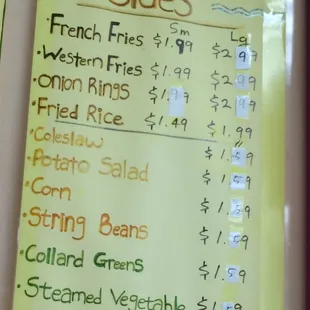 Sides
Sm Lg
• French Fries $1.99 $2.99
• Western Fries $1.99 $2.99
• Onion Rings $1.99 $2.99
• Fried Rice $1.49 $1.99
• Coleslaw $1.59
• Potato Salad $1.59
• Corn $1.59
• String Beans $1.59
• Collard Greens $1.59
• Steamed Vegetable $1.59